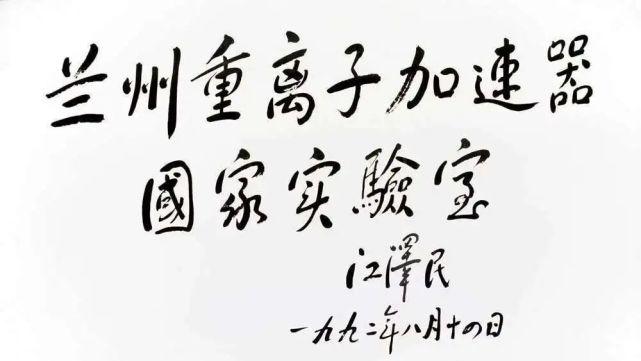 兰州重离子加速器
國家实驗室
江澤民
一九九二年八月十四日